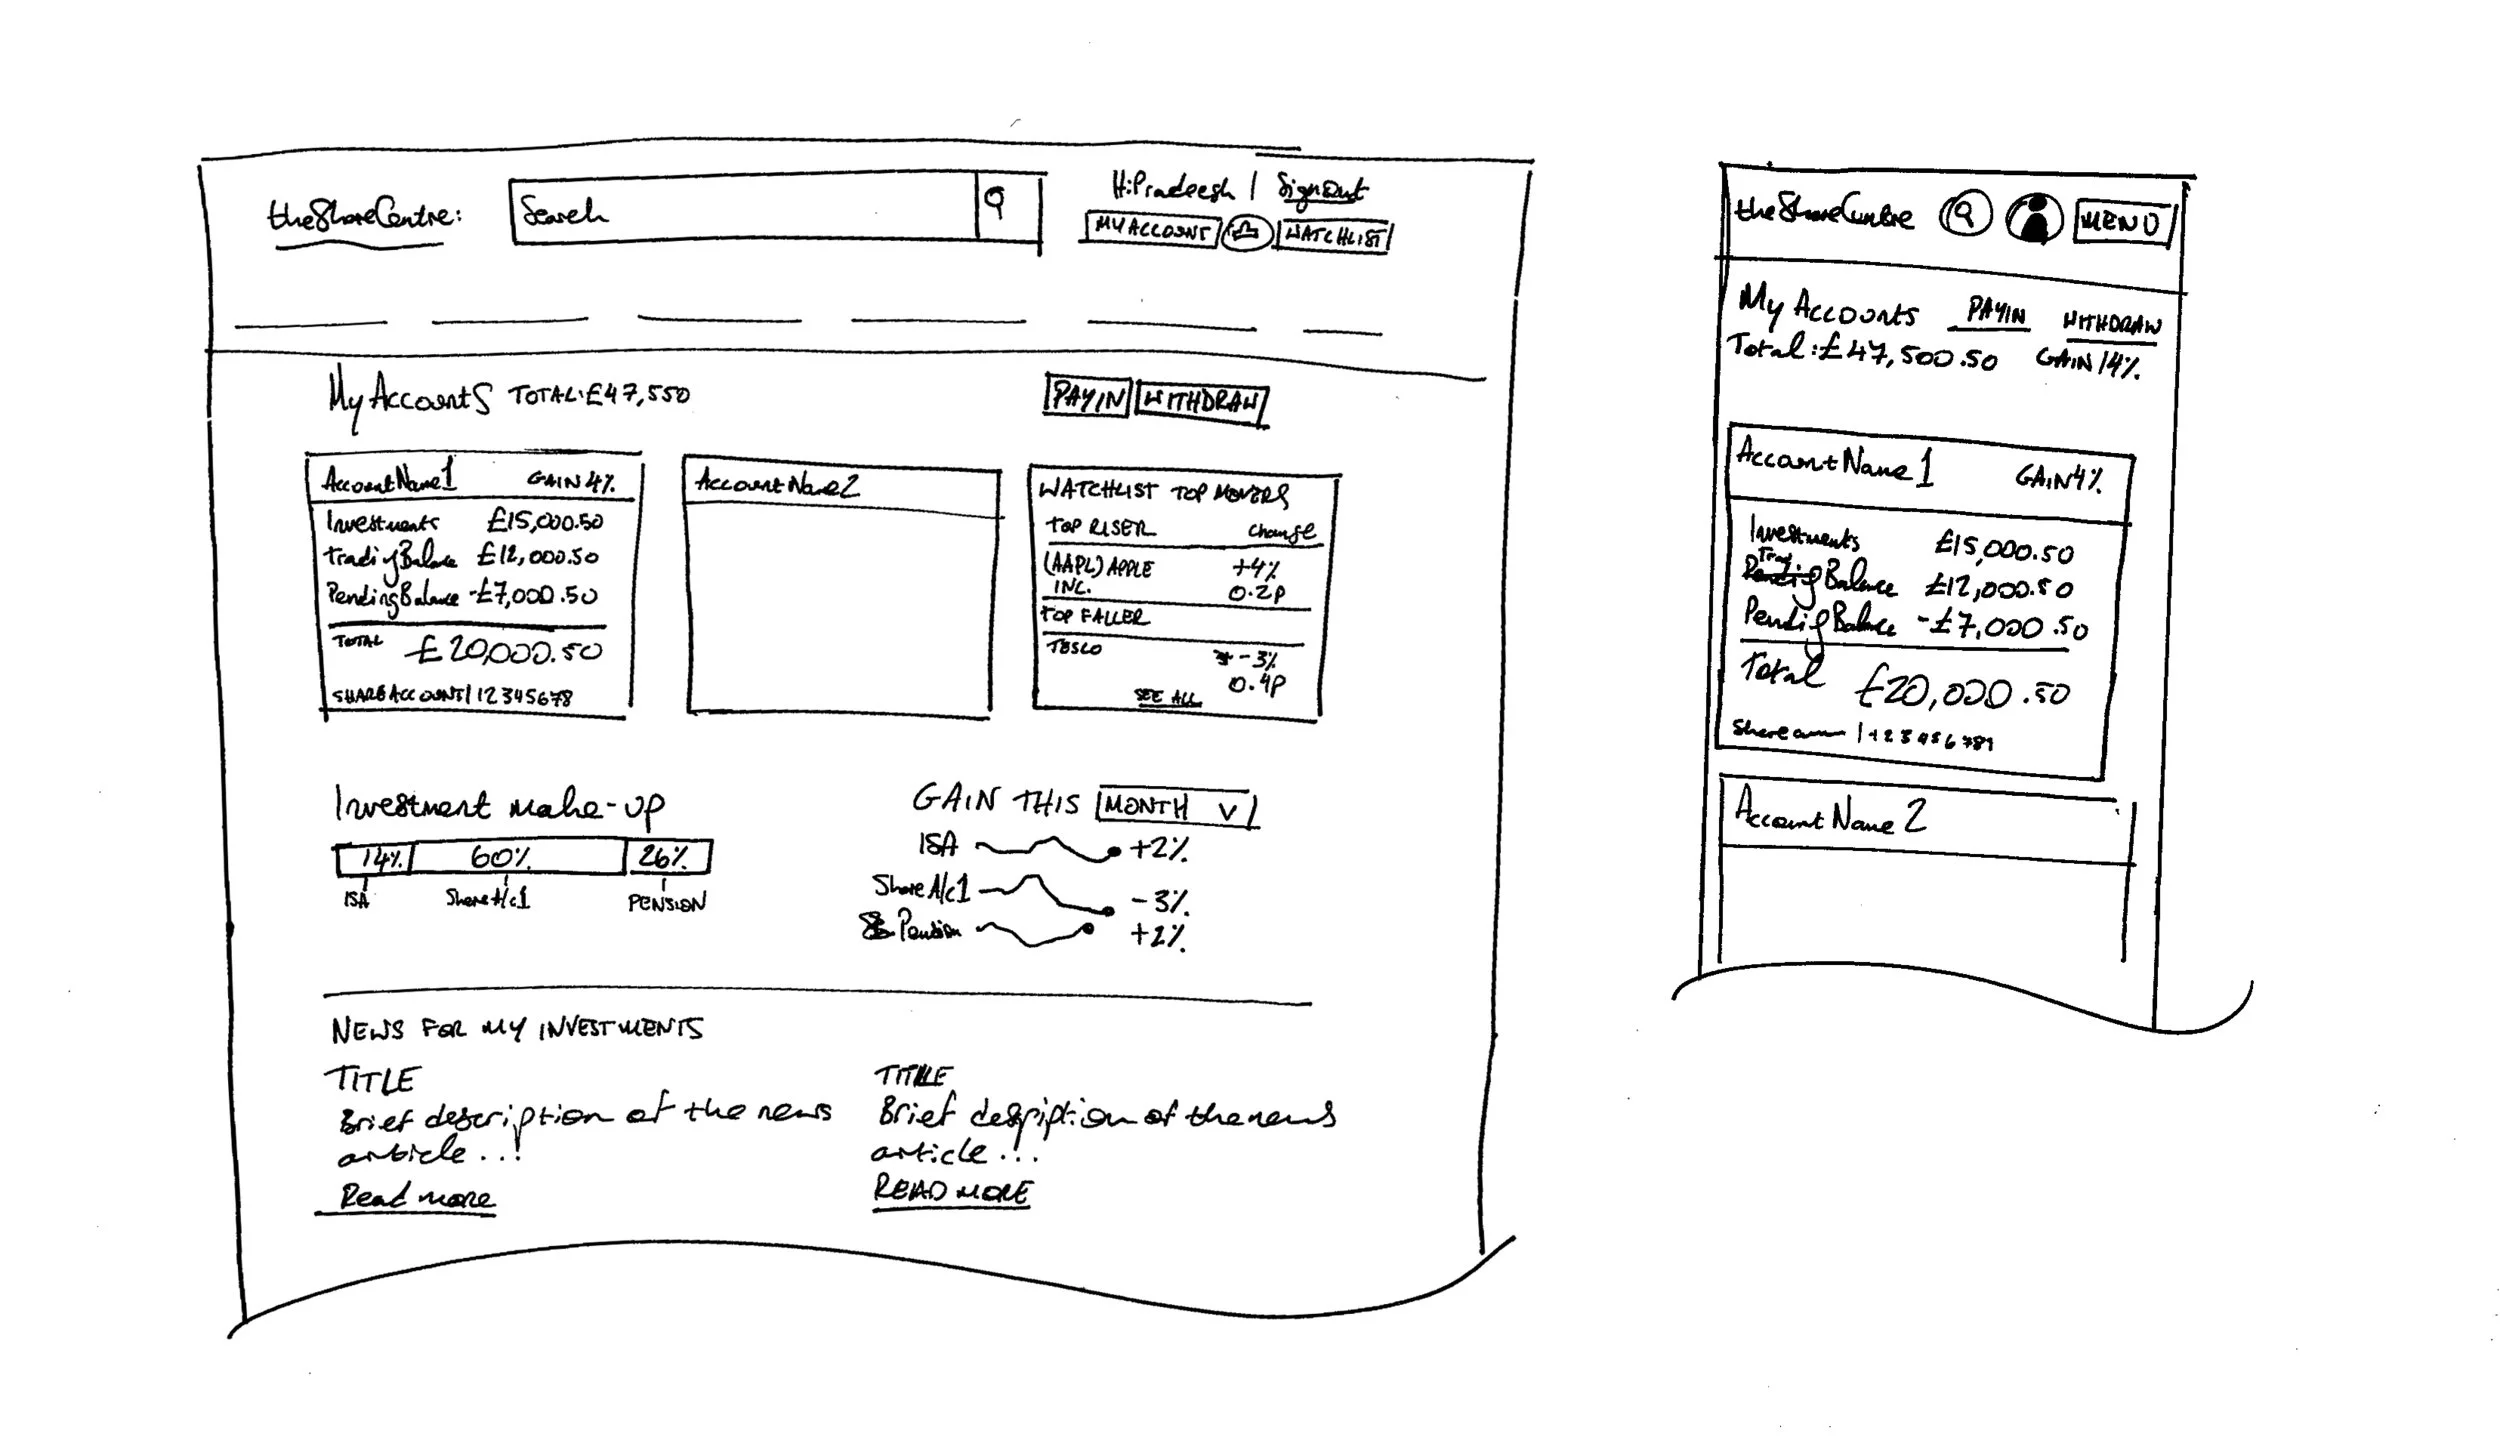 theShareCentre:
Search
Hi Pradeesh | Sign Out
MY ACCOUNT
WATCHLIST
My Accounts TOTAL: £47,550
PAY IN
WITHDRAW
Account Name 1 GAIN 4%
Investments £15,000.50
Trading Balance £12,000.50
Pending Balance -£7,000.50
TOTAL £20,000.50
SHARE ACCOUNT | 12345678
Account Name 2
WATCHLIST TOP MOVERS
TOP RISER change
(AAPL) APPLE +4%
INC. 0.2P
TOP FALLER
TESCO -3%
0.4P
SEE ALL
Investment make-up
14% 60% 26%
ISA Share A/c1 PENSION
GAIN THIS MONTH V
ISA +2%
Share A/c1 -3%
Pension +2%
NEWS FOR MY INVESTMENTS
TITLE
Brief description of the news
article...!
Read more
TITLE
Brief despiption of the news
article...
READ MORE
theShareCentre
MENU
My Accounts PAY IN WITHDRAW
Total: £47,500.50 GAIN 14%
Account Name 1 GAIN 4%
Investments £15,000.50
Balance £12,000.50
Pending Balance -£7,000.50
Total £20,000.50
Share
Account Name 2